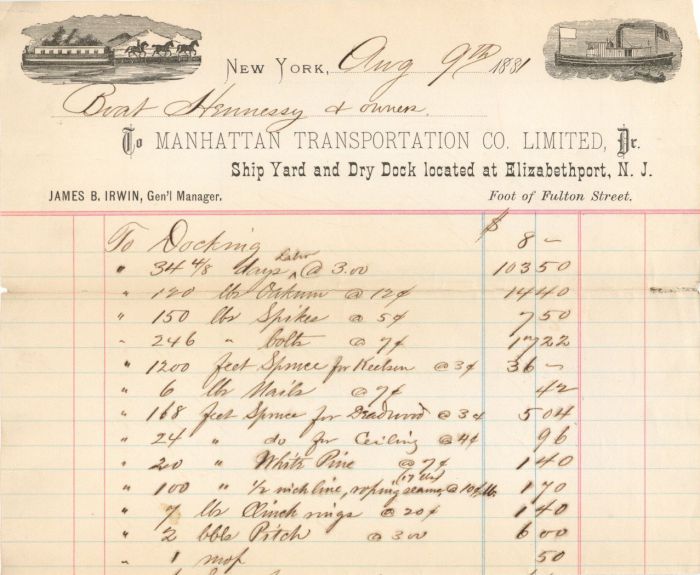 New York, Aug 9th 1881
Boat Hennessy & owners
To MANHATTAN TRANSPORTATION CO. LIMITED, Dr.
Ship Yard and Dry Dock located at Elizabethport, N. J.
JAMES B. IRWIN, Gen'l Manager. Foot of Fulton Street.
$
To Docking 8 –
" 34 4/8 days Labor @ 3.00 103 50
" 120 lbs Oakum @ 12¢ 14 40
" 150 lbs Spikes @ 5¢ 7 50
" 246 " bolts @ 7¢ 17 22
" 1200 feet Spruce for Keelson @ 3¢ 36 –
" 6 lbs Nails @ 7¢ 42
" 168 feet Spruce for Deadwood @ 3¢ 5 04
" 24 " do for Ceiling @ 4¢ 96
" 20 " White Pine @ 7¢ 1 40
" 100 " 1/2 inch line, roping seams (17 lbs) @ 10¢ lb 1 70
" 7 lbs Clinch rings @ 20¢ 1 40
" 2 bbls Pitch @ 3 00 6 00
" 1 mop 50